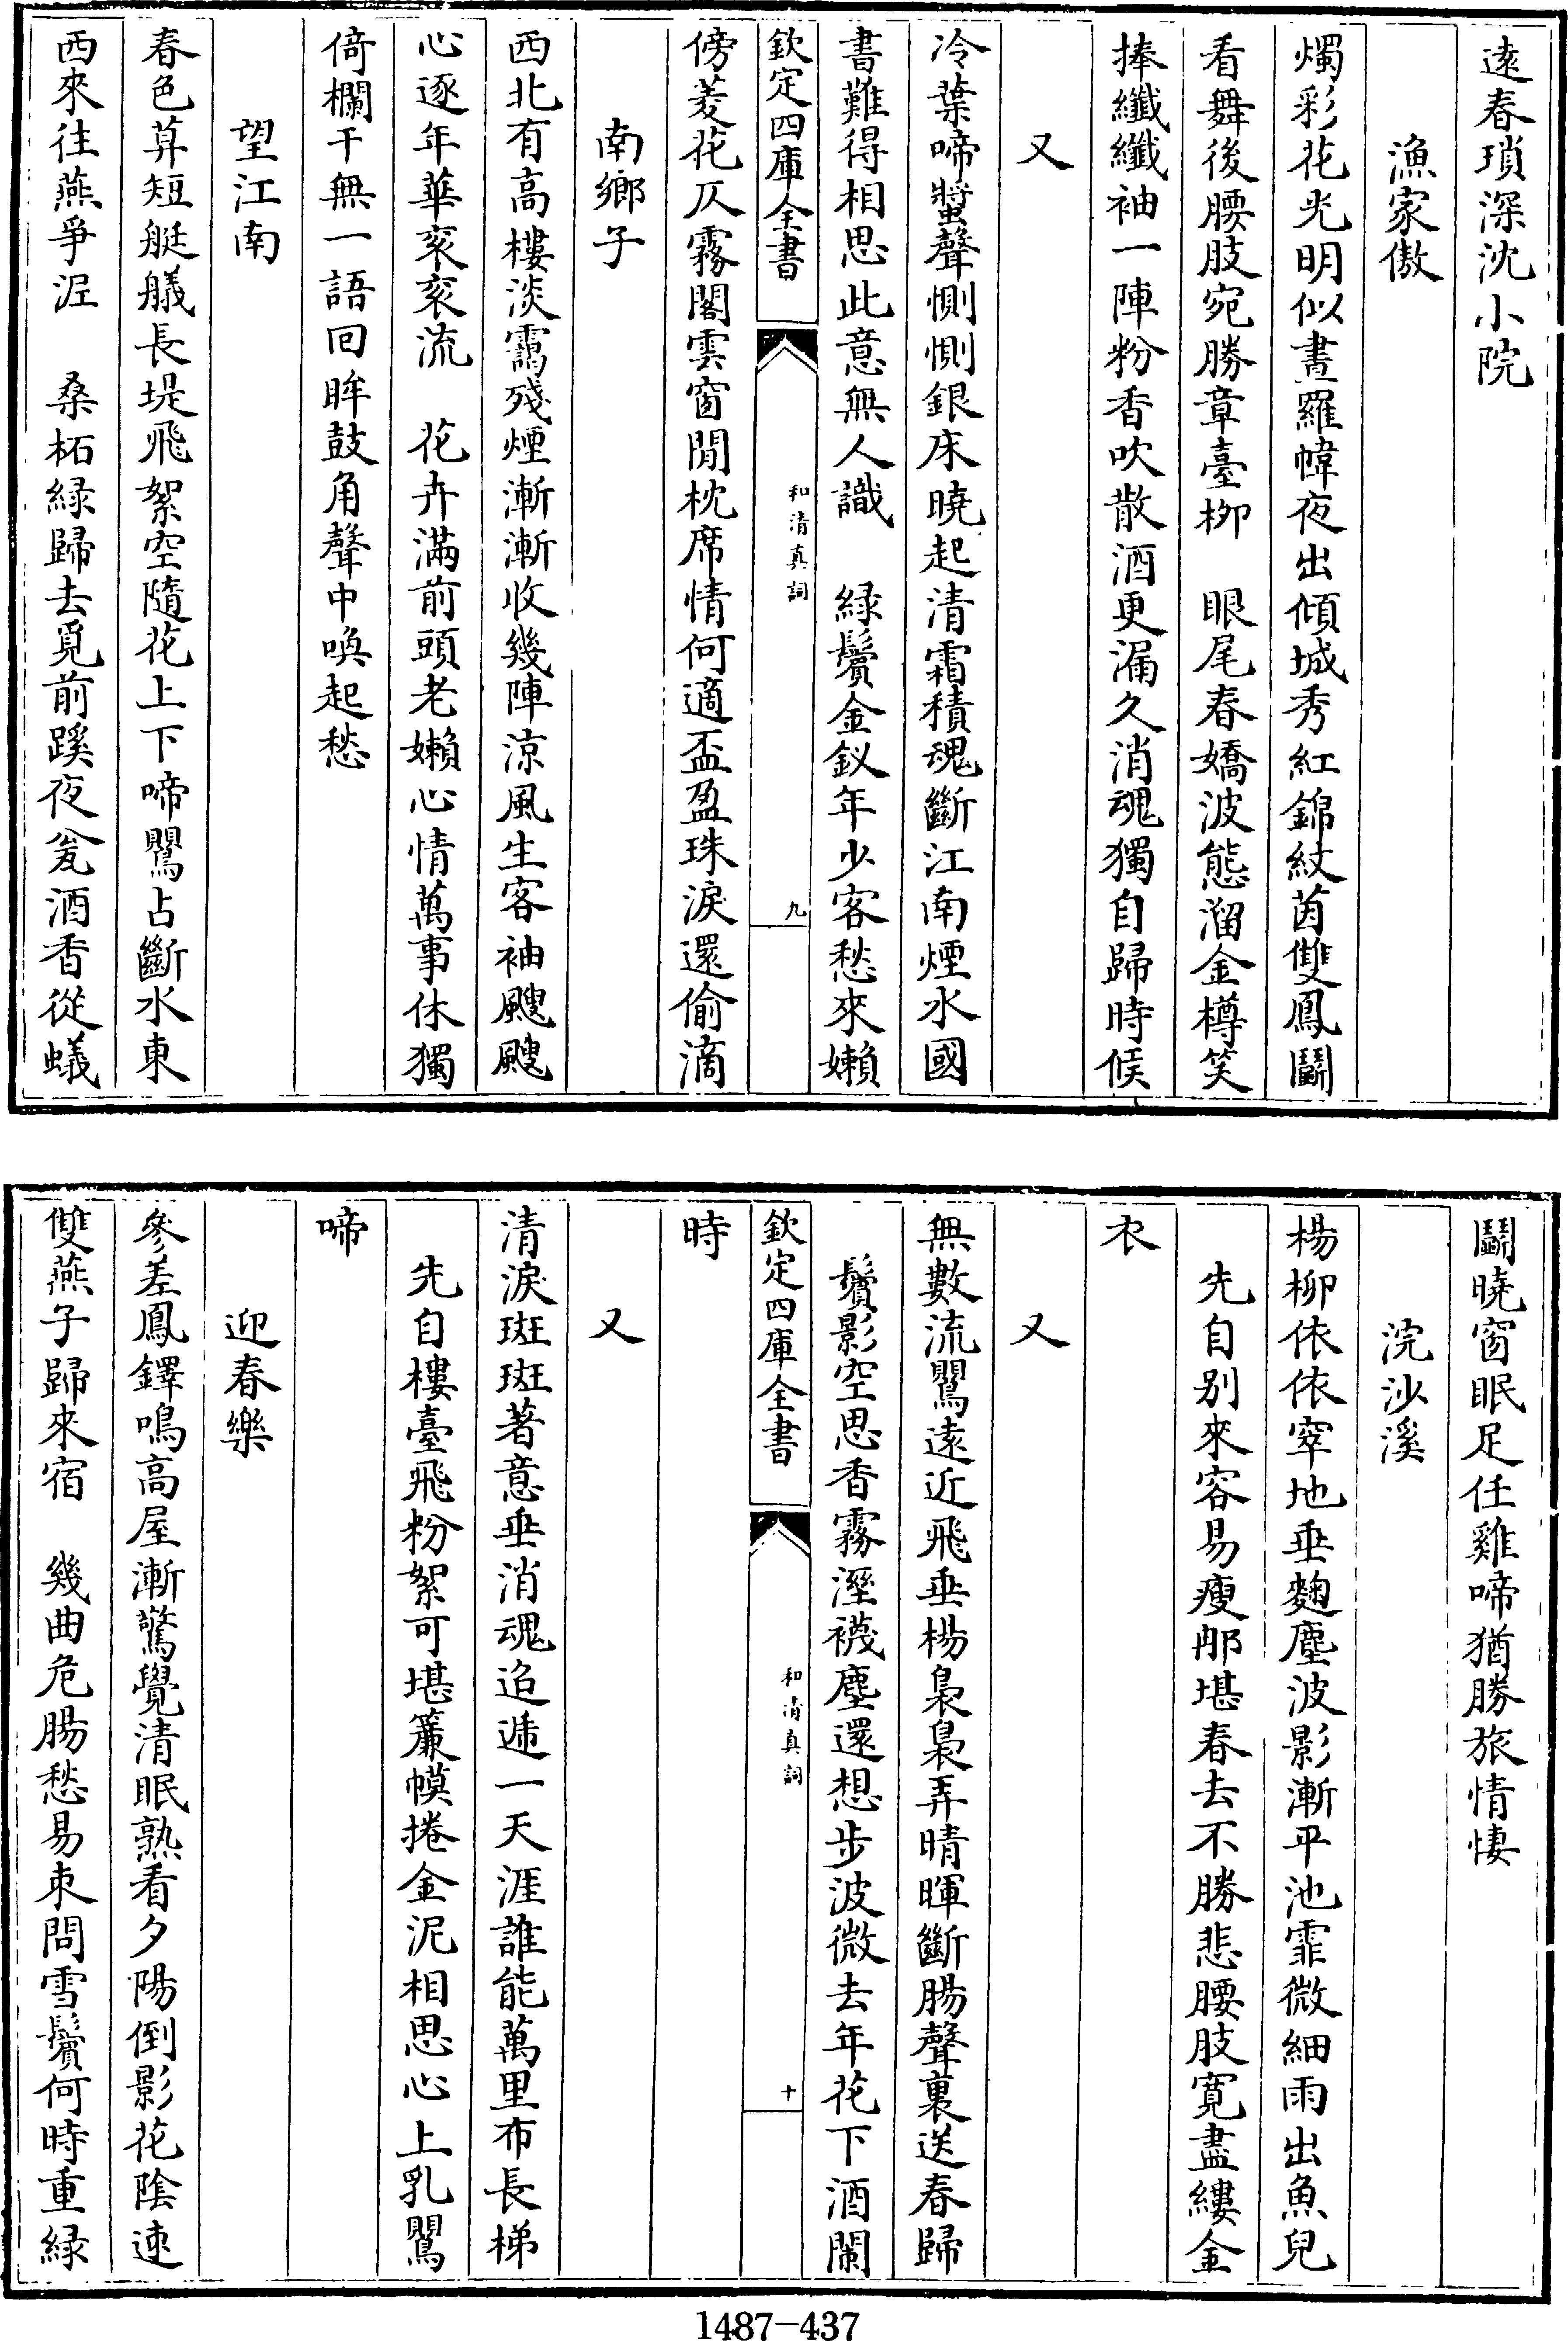 遠春瑣深沈小院
漁家傲
燭彩花光明似晝羅幃夜出傾城秀紅錦紋茵雙鳳鬭
看舞後腰肢宛勝章臺柳　眼尾春嬌波態溜金樽笑
捧纖纖袖一陣粉香吹散酒更漏久消魂獨自歸時候
又
冷葉啼螿聲惻惻銀床曉起清霜積魂斷江南煙水國
書難得相思此意無人識　緑鬢金釵年少客愁來嬾
欽定四庫全書
和清真詞
九
傍菱花仄霧閣雲窗閒枕席情何適盃盈珠淚還偷滴
南鄉子
西北有高樓淡靄殘煙漸漸收幾陣涼風生客袖颼颼
心逐年華衮衮流　花卉滿前頭老嬾心情萬事休獨
倚欄干無一語回眸鼓角聲中喚起愁
望江南
春色草短艇艤長堤飛絮空隨花上下啼鸎占斷水東
西來往燕爭泥　桑柘緑歸去覓前蹊夜瓮酒香從蟻
鬭曉窗眠足任雞啼猶勝旅情悽
浣沙溪
楊柳依依窣地垂麴塵波影漸平池霏微細雨出魚兒
先自別來容易瘦那堪春去不勝悲腰肢寛盡縷金
衣
又
無數流鸎遠近飛垂楊裊裊弄晴暉斷腸聲裏送春歸
鬢影空思香霧溼襪塵還想步波微去年花下酒闌
欽定四庫全書
和清真詞
十
時
又
清淚斑斑著意垂消魂迢遞一天涯誰能萬里布長梯
先自樓臺飛粉絮可堪簾幙捲金泥相思心上乳鸎
啼
迎春樂
參差鳳鐸鳴高屋漸驚覺清眠熟看夕陽倒影花陰速
雙燕子歸來宿　幾曲危腸愁易束問雪鬢何時重緑
1487-437